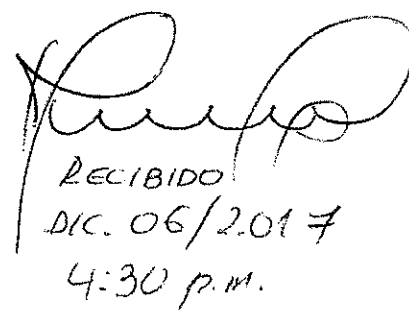 RECIBIDO
DIC. 06/2.017
4:30 p.m.